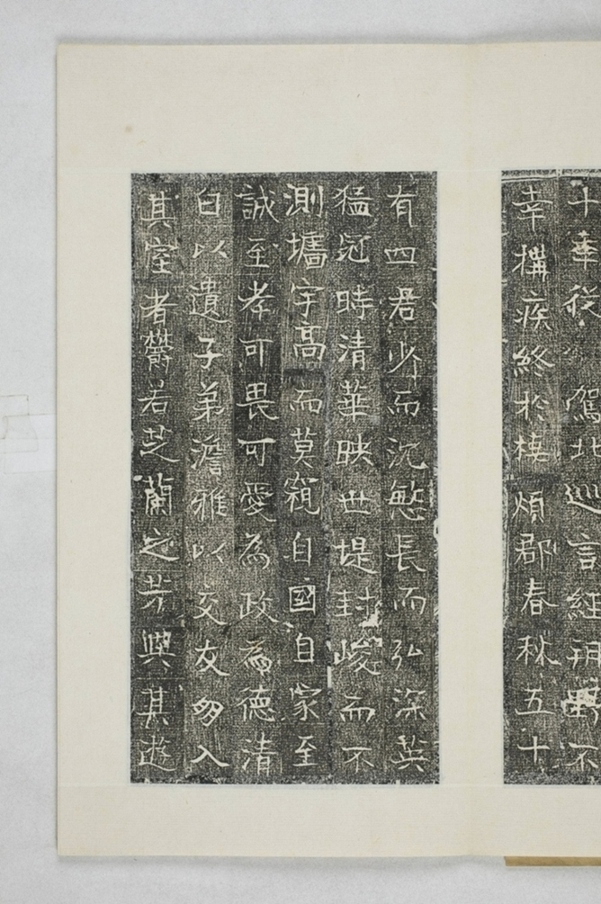 十年從駕北巡言經朔野不
幸構疾終於樓煩郡春秋五十
有四君少而沉慜長而弘深英
猛冠時清華映世堤封峻而不
測墻宇高而莫窺自國自家至
誠至孝可畏可愛為政為德清
白以遺子弟澹雅以交友朋入
其室者欝若芝蘭之芳與其遊